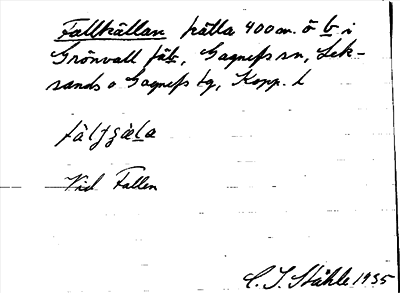 Fallkällan källa 400 m. ö b i
Grönvall fäb, Gagnefs sn, Lek-
sands o Gagnefs tg, Kopp. l
Vid Fallen
C. I. Ståhle 1935